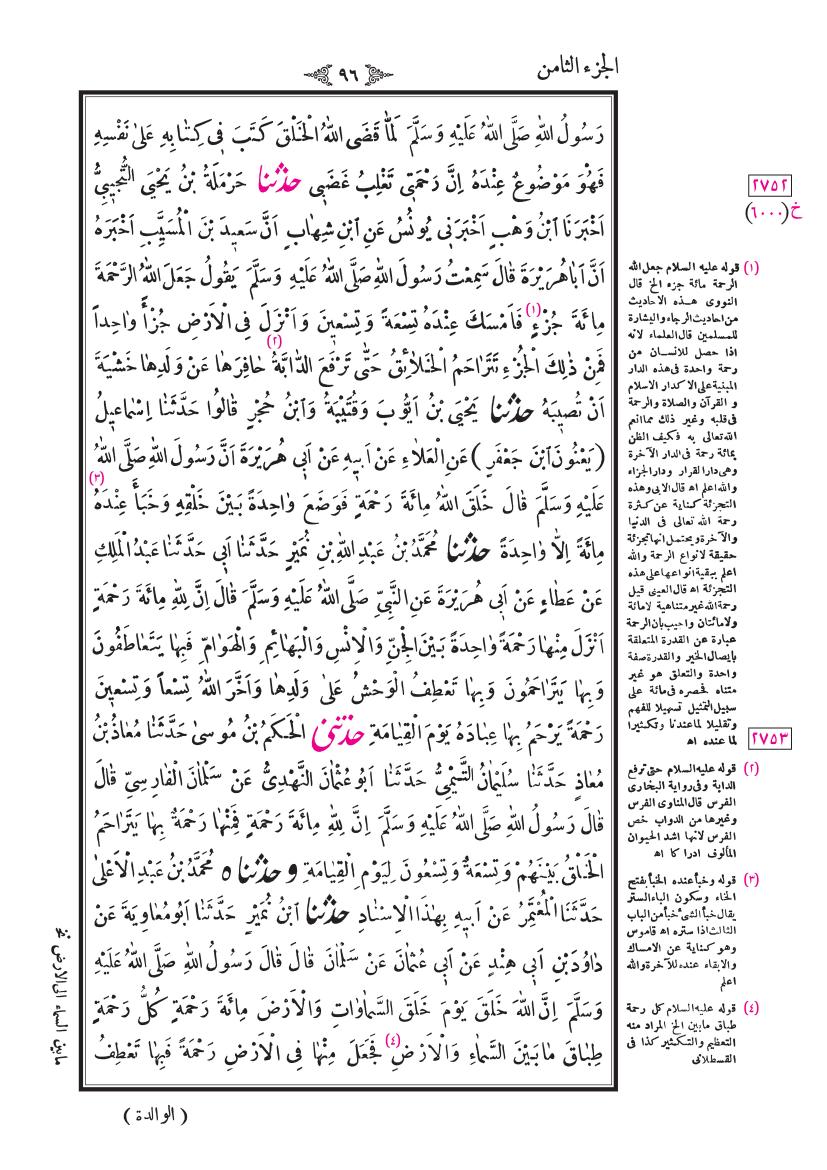 الجزء الثامن
٩٦
رَسُولُ اللهِ صَلَّى اللهُ عَلَيْهِ وَسَلَّمَ لَمَّا قَضَى اللهُ الْخَلْقَ كَتَبَ فِى كِتَابِهِ عَلىٰ نَفْسِهِ
فَهُوَ مَوْضُوعٌ عِنْدَهُ اِنَّ رَحْمَتِى تَغْلِبُ غَضَبِى حَدَّثَنَا حَرْمَلَةُ بْنُ يَحْيَى التُّجِيبِىُّ
اَخْبَرَنَا ابْنُ وَهْبٍ اَخْبَرَنِى يُونُسُ عَنِ ابْنِ شِهَابٍ اَنَّ سَعِيدَ بْنَ الْمُسَيَّبِ اَخْبَرَهُ
اَنَّ اَبَا هُرَيْرَةَ قَالَ سَمِعْتُ رَسُولَ اللهِ صَلَّى اللهُ عَلَيْهِ وَسَلَّمَ يَقُولُ جَعَلَ اللهُ الرَّحْمَةَ
مِائَةَ جُزْءٍ (١) فَاَمْسَكَ عِنْدَهُ تِسْعَةً وَتِسْعِينَ وَاَنْزَلَ فِى الْاَرْضِ جُزْأً وَاحِداً
فَمِنْ ذٰلِكَ الْجُزْءِ تَتَرَاحَمُ الْخَلَائِقُ حَتَّى تَرْفَعَ الدَّابَّةُ (٢) حَافِرَهَا عَنْ وَلَدِهَا خَشْيَةَ
اَنْ تُصِيبَهُ حَدَّثَنَا يَحْيَى بْنُ اَيُّوبَ وَقُتَيْبَةُ وَابْنُ حُجْرٍ قَالُوا حَدَّثَنَا اِسْمَاعِيلُ
( يَعْنُونَ ابْنَ جَعْفَرٍ ) عَنِ الْعَلَاءِ عَنْ اَبِيهِ عَنْ اَبِى هُرَيْرَةَ اَنَّ رَسُولَ اللهِ صَلَّى اللهُ
عَلَيْهِ وَسَلَّمَ قَالَ خَلَقَ اللهُ مِائَةَ رَحْمَةٍ فَوَضَعَ وَاحِدَةً بَيْنَ خَلْقِهِ وَخَبَأَ عِنْدَهُ (٣)
مِائَةً اِلَّا وَاحِدَةً حَدَّثَنَا مُحَمَّدُ بْنُ عَبْدِ اللهِ بْنِ نُمَيْرٍ حَدَّثَنَا اَبِى حَدَّثَنَا عَبْدُ الْمَلِكِ
عَنْ عَطَاءٍ عَنْ اَبِى هُرَيْرَةَ عَنِ النَّبِىِّ صَلَّى اللهُ عَلَيْهِ وَسَلَّمَ قَالَ اِنَّ لِلّٰهِ مِائَةَ رَحْمَةٍ
اَنْزَلَ مِنْهَا رَحْمَةً وَاحِدَةً بَيْنَ الْجِنِّ وَالْاِنْسِ وَالْبَهَائِمِ وَالْهَوَامِّ فَبِهَا يَتَعَاطَفُونَ
وَبِهَا يَتَرَاحَمُونَ وَبِهَا تَعْطِفُ الْوَحْشُ عَلىٰ وَلَدِهَا وَاَخَّرَ اللهُ تِسْعاً وَتِسْعِينَ
رَحْمَةً يَرْحَمُ بِهَا عِبَادَهُ يَوْمَ الْقِيَامَةِ حَدَّثَنِى الْحَكَمُ بْنُ مُوسىٰ حَدَّثَنَا مُعَاذُ بْنُ
مُعَاذٍ حَدَّثَنَا سُلَيْمَانُ التَّيْمِىُّ حَدَّثَنَا اَبُو عُثْمَانَ النَّهْدِىُّ عَنْ سَلْمَانَ الْفَارِسِىِّ قَالَ
قَالَ رَسُولُ اللهِ صَلَّى اللهُ عَلَيْهِ وَسَلَّمَ اِنَّ لِلّٰهِ مِائَةَ رَحْمَةٍ فَمِنْهَا رَحْمَةٌ بِهَا يَتَرَاحَمُ
الْخَلْقُ بَيْنَهُمْ وَتِسْعَةٌ وَتِسْعُونَ لِيَوْمِ الْقِيَامَةِ وَحَدَّثَنَاهُ مُحَمَّدُ بْنُ عَبْدِ الْاَعْلىٰ
حَدَّثَنَا الْمُعْتَمِرُ عَنْ اَبِيهِ بِهٰذَا الْاِسْنَادِ حَدَّثَنَا ابْنُ نُمَيْرٍ حَدَّثَنَا اَبُو مُعَاوِيَةَ عَنْ
دَاوُدَ بْنِ اَبِى هِنْدٍ عَنْ اَبِى عُثْمَانَ عَنْ سَلْمَانَ قَالَ قَالَ رَسُولُ اللهِ صَلَّى اللهُ عَلَيْهِ
وَسَلَّمَ اِنَّ اللهَ خَلَقَ يَوْمَ خَلَقَ السَّمَاوَاتِ وَالْاَرْضَ مِائَةَ رَحْمَةٍ كُلُّ رَحْمَةٍ
طِبَاقَ مَا بَيْنَ السَّمَاءِ وَالْاَرْضِ (٤) فَجَعَلَ مِنْهَا فِى الْاَرْضِ رَحْمَةً فَبِهَا تَعْطِفُ
( الوالدة )
٢٧٥٢
خ (٦٠٠٠)
(١) قوله عليه السلام جعل الله
الرحمة مائة جزء الخ قال
النووى هذه الاحاديث
من احاديث الرجاء والبشارة
للمسلمين قال العلماء لانه
اذا حصل للانسان من
رحمة واحدة فى هذه الدار
المبنية على الاكدار الاسلام
و القرآن والصلاة والرحمة
فى قلبه وغير ذلك مما انعم
الله تعالى به فكيف الظن
بمائة رحمة فى الدار الآخرة
وهى دار القرار ودار الجزاء
والله اعلم اه قال الابى وهذه
التجزئة كناية عن كثرة
رحمة الله تعالى فى الدنيا
والآخرة ويحتمل انها تجزئة
حقيقة لانواع الرحمة والله
اعلم ببقية انواعها على هذه
التجزئة اه قال العينى قيل
رحمة الله غير متناهية لا مائة
ولا مائتان واجيب بان الرحمة
عبارة عن القدرة المتعلقة
بايصال الخير والقدرة صفة
واحدة والتعلق هو غير
متناه فحصره فى مائة على
سبيل التمثيل تسهيلا للفهم
وتقليلا لما عندنا وتكثيرا
لما عنده اه
٢٧٥٣
(٢) قوله عليه السلام حتى ترفع
الدابة وفى رواية البخارى
الفرس قال المناوى الفرس
وغيرها من الدواب خص
الفرس لانها اشد الحيوان
المألوف ادراكا اه
(٣) قوله وخبأ عنده الخبأ بفتح
الخاء وسكون الباء الستر
يقال خبأ الشئ خبأ من الباب
الثالث اذا ستره اه قاموس
وهو كناية عن الامساك
والابقاء عنده للآخرة والله
اعلم
(٤) قوله عليه السلام كل رحمة
طباق مابين الخ المراد منه
التعظيم والتكثير كذا فى
القسطلانى
مابين السماء الى الارض نخ